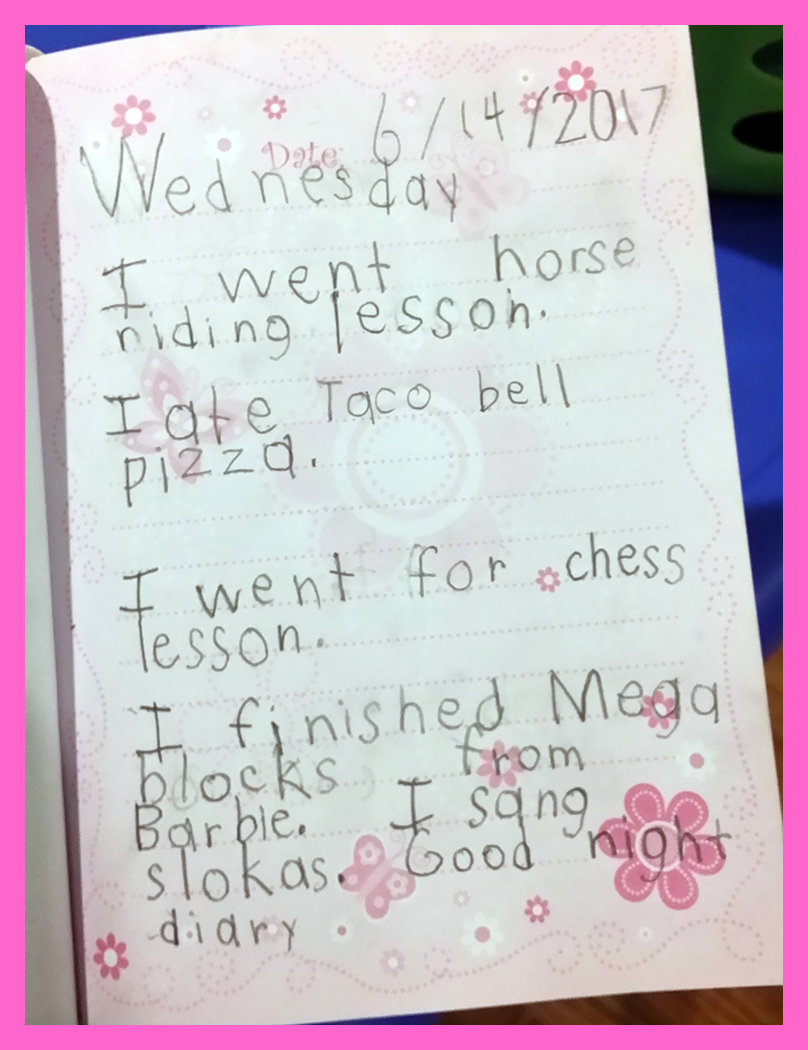 Date: 6/14/2017
Wednesday
I went horse
riding lesson.
I ate Taco bell
pizza.
I went for chess
lesson.
I finished Mega
blocks from
Barbie. I sang
slokas. Good night
diary